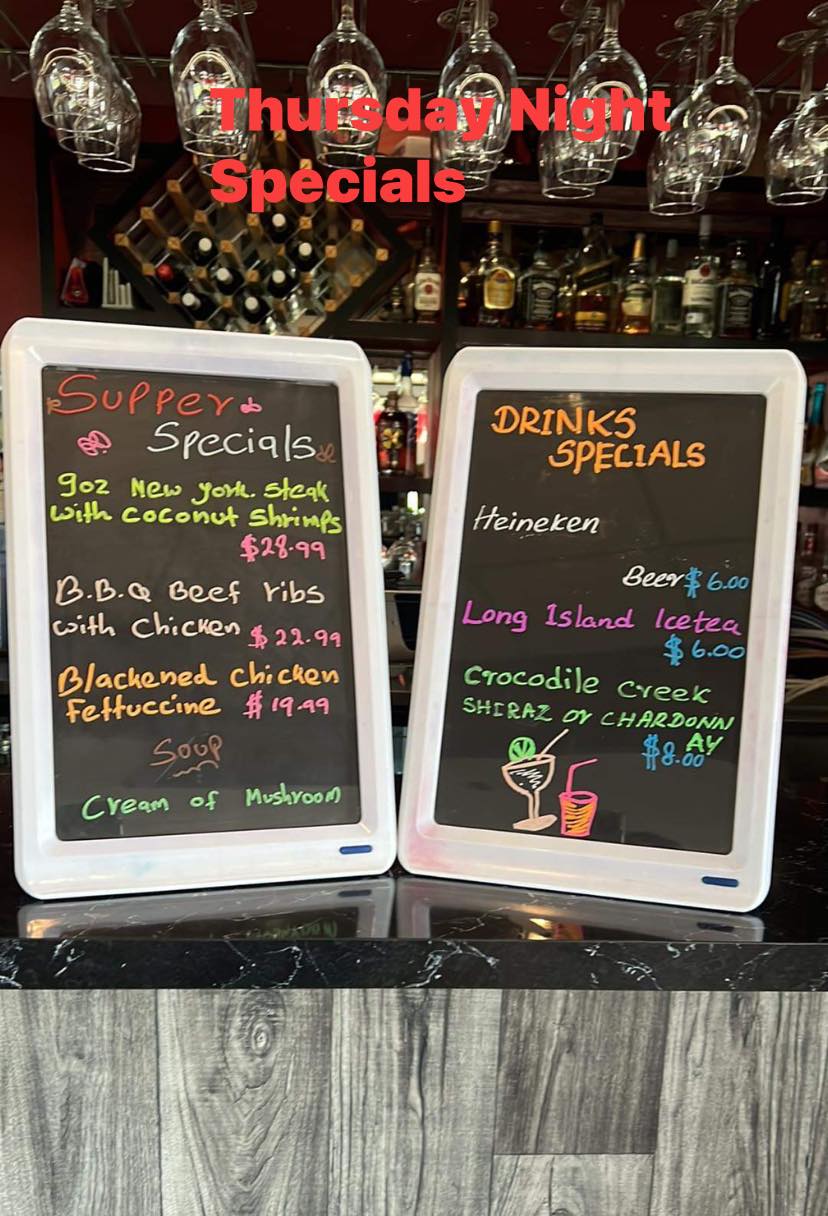 Thursday Night
Specials
Supper
Specials
9oz New york. steak
with coconut shrimps
$28.99
B.B.Q Beef ribs
with Chicken $22.99
Blackened chicken
Fettuccine $19.99
Soup
Cream of Mushroom
DRINKS
SPECIALS
Heineken
Beer $6.00
Long Island Icetea
$6.00
Crocodile Creek
SHIRAZ or CHARDONN
AY
$8.00